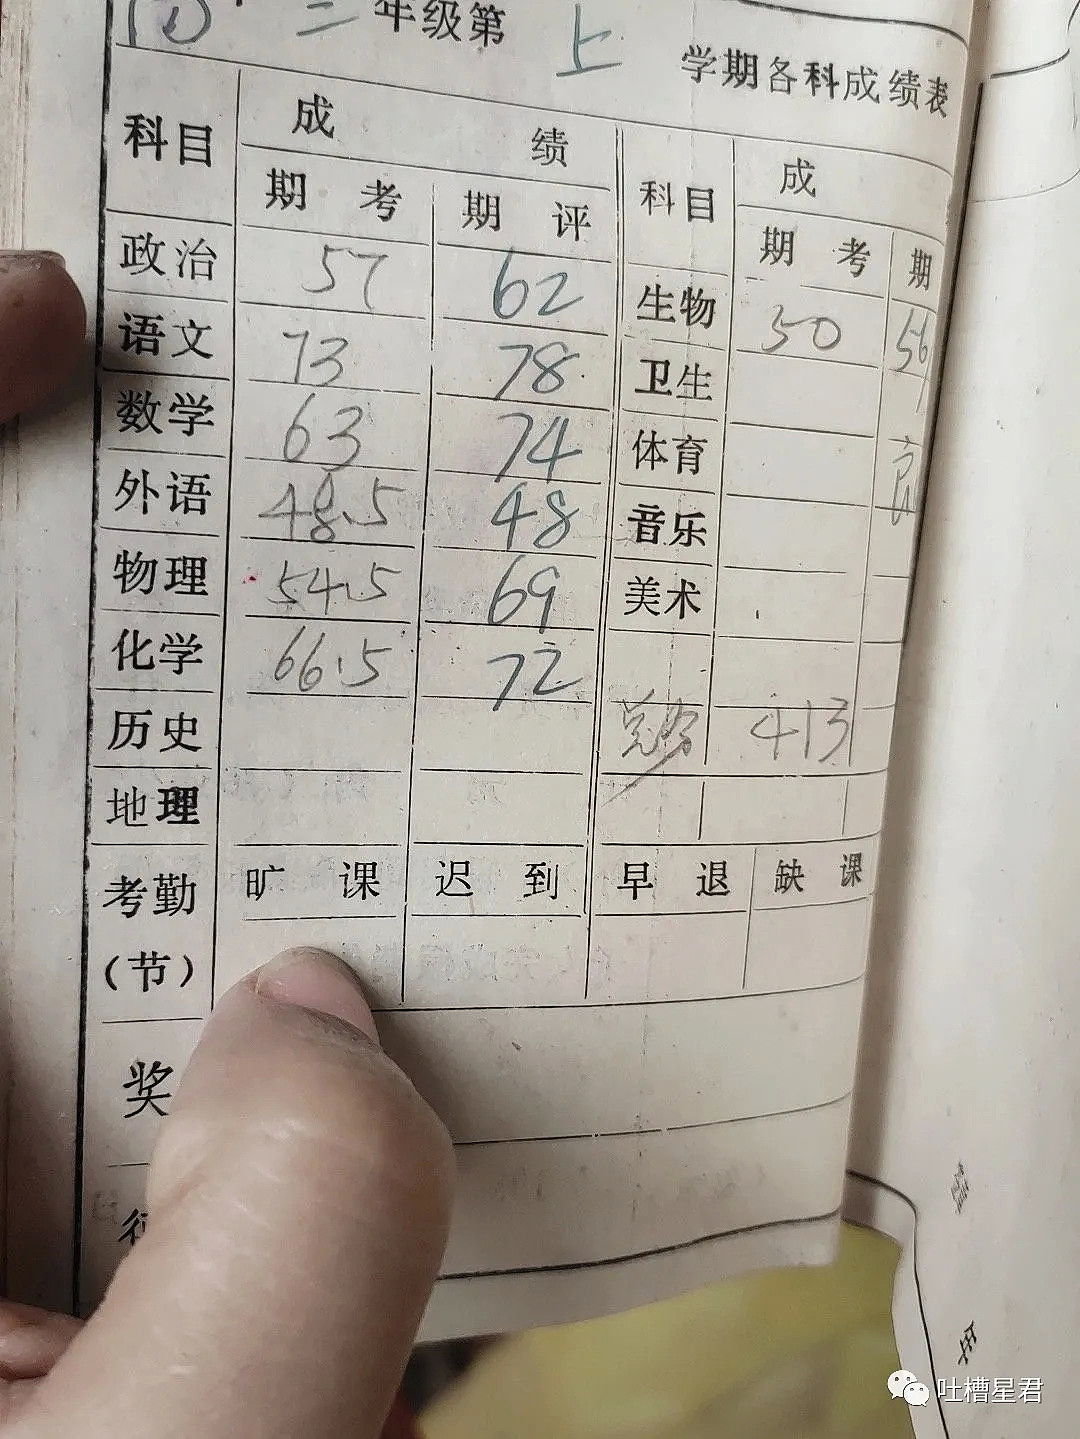 二年级第 上 学期各科成绩表
科目 成 绩 科目 成
期考 期评 期考 期
政治 57 62 生物 50 56
语文 73 78 卫生
数学 63 74 体育 良
外语 48.5 48 音乐
物理 54.5 69 美术
化学 66.5 72
历史 总分 413
地理
考勤 旷课 迟到 早退 缺课
(节)
奖
吐槽星君